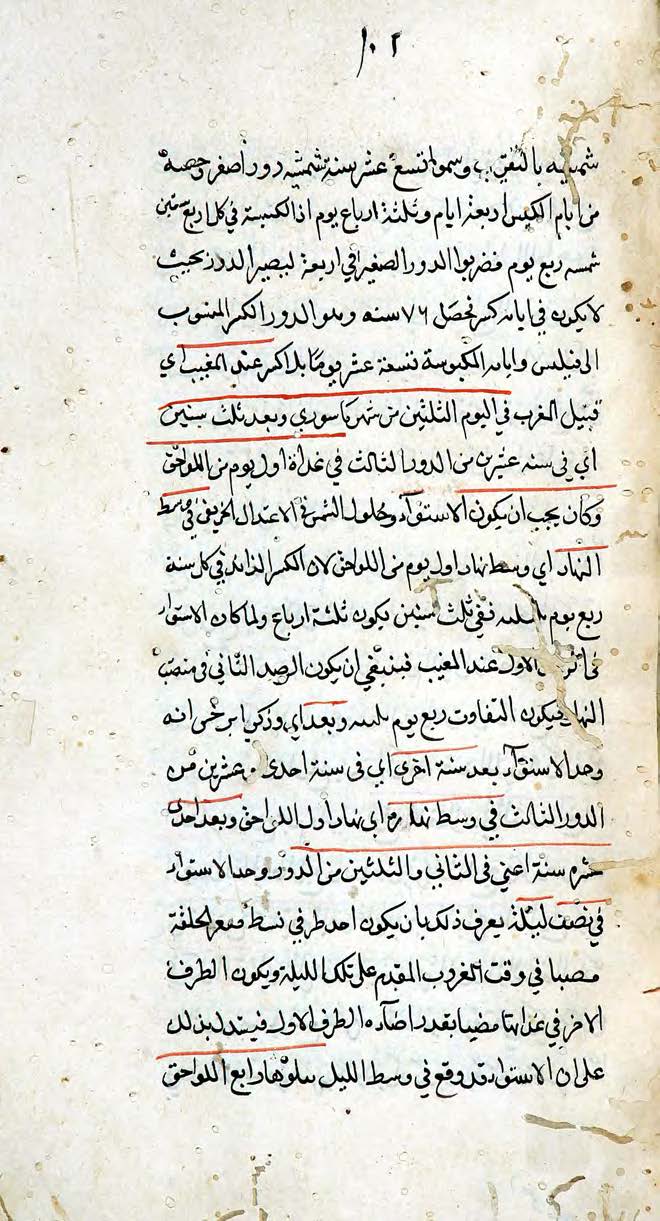 ١٠٢
شمسيه بالتقريب وسموا تسع عشر سنة شمسيه دورا صغر وحصة
من ايام الكبس اربعة ايام وثلثة ارباع يوم اذ الكبيسة في كل اربع سنين
شمسه ربع يوم فضربوا الدور الصغير في اربعة ليصير الدور بحيث
لا يكون في ايامه كسر فحصل ٧٦ سنه وهو الدور الكبر المنسوب
الى فيلبس وايامه المكبوسة تسعة عشر يوما بلا كسر عند المغيب اي
قبيل المغرب في اليوم الثلثين من شهر ماسوري وبعد ثلث سنين
اي في سنه عشرين من الدور الثالث في غداة اول يوم من اللواحق
وكان يجب ان يكون الاستوآء وحلول الشمس في الاعتدال الخريفي في وسط
النهار اي وسط نهار اول يوم من اللواحق لان الكسر الزائد في كل سنة
ربع يوم ففي ثلث سنين يكون ثلثة ارباع ولما كان الاستوا
الاول عند المغيب فينبغي ان يكون الرصد الثاني في منتصف
النهار فيكون التفاوت ربع يوم وبعد اي وذكر ابرخس انه
وجد الاستوآء بعد سنة اخرى اي في سنة احدى وعشرين من
الدور الثالث في وسط نهاره اي نهار اول اللواحق وبعد احدى
عشره سنة اعني في الثاني والثلثين من الدور وجد الاستوآء
في نصف ليلة يعرف ذلك بان يكون احد طرفي بسط مقعر الحلقة
مضيا في وقت الغروب المقدم على تلك الليلة ويكون الطرف
الاخر في غداتها مضيا بقدر اضآءه الطرف الاول فيستدل بذلك
على ان الاستواء قد وقع في وسط الليل يتلوها رابع اللواحق